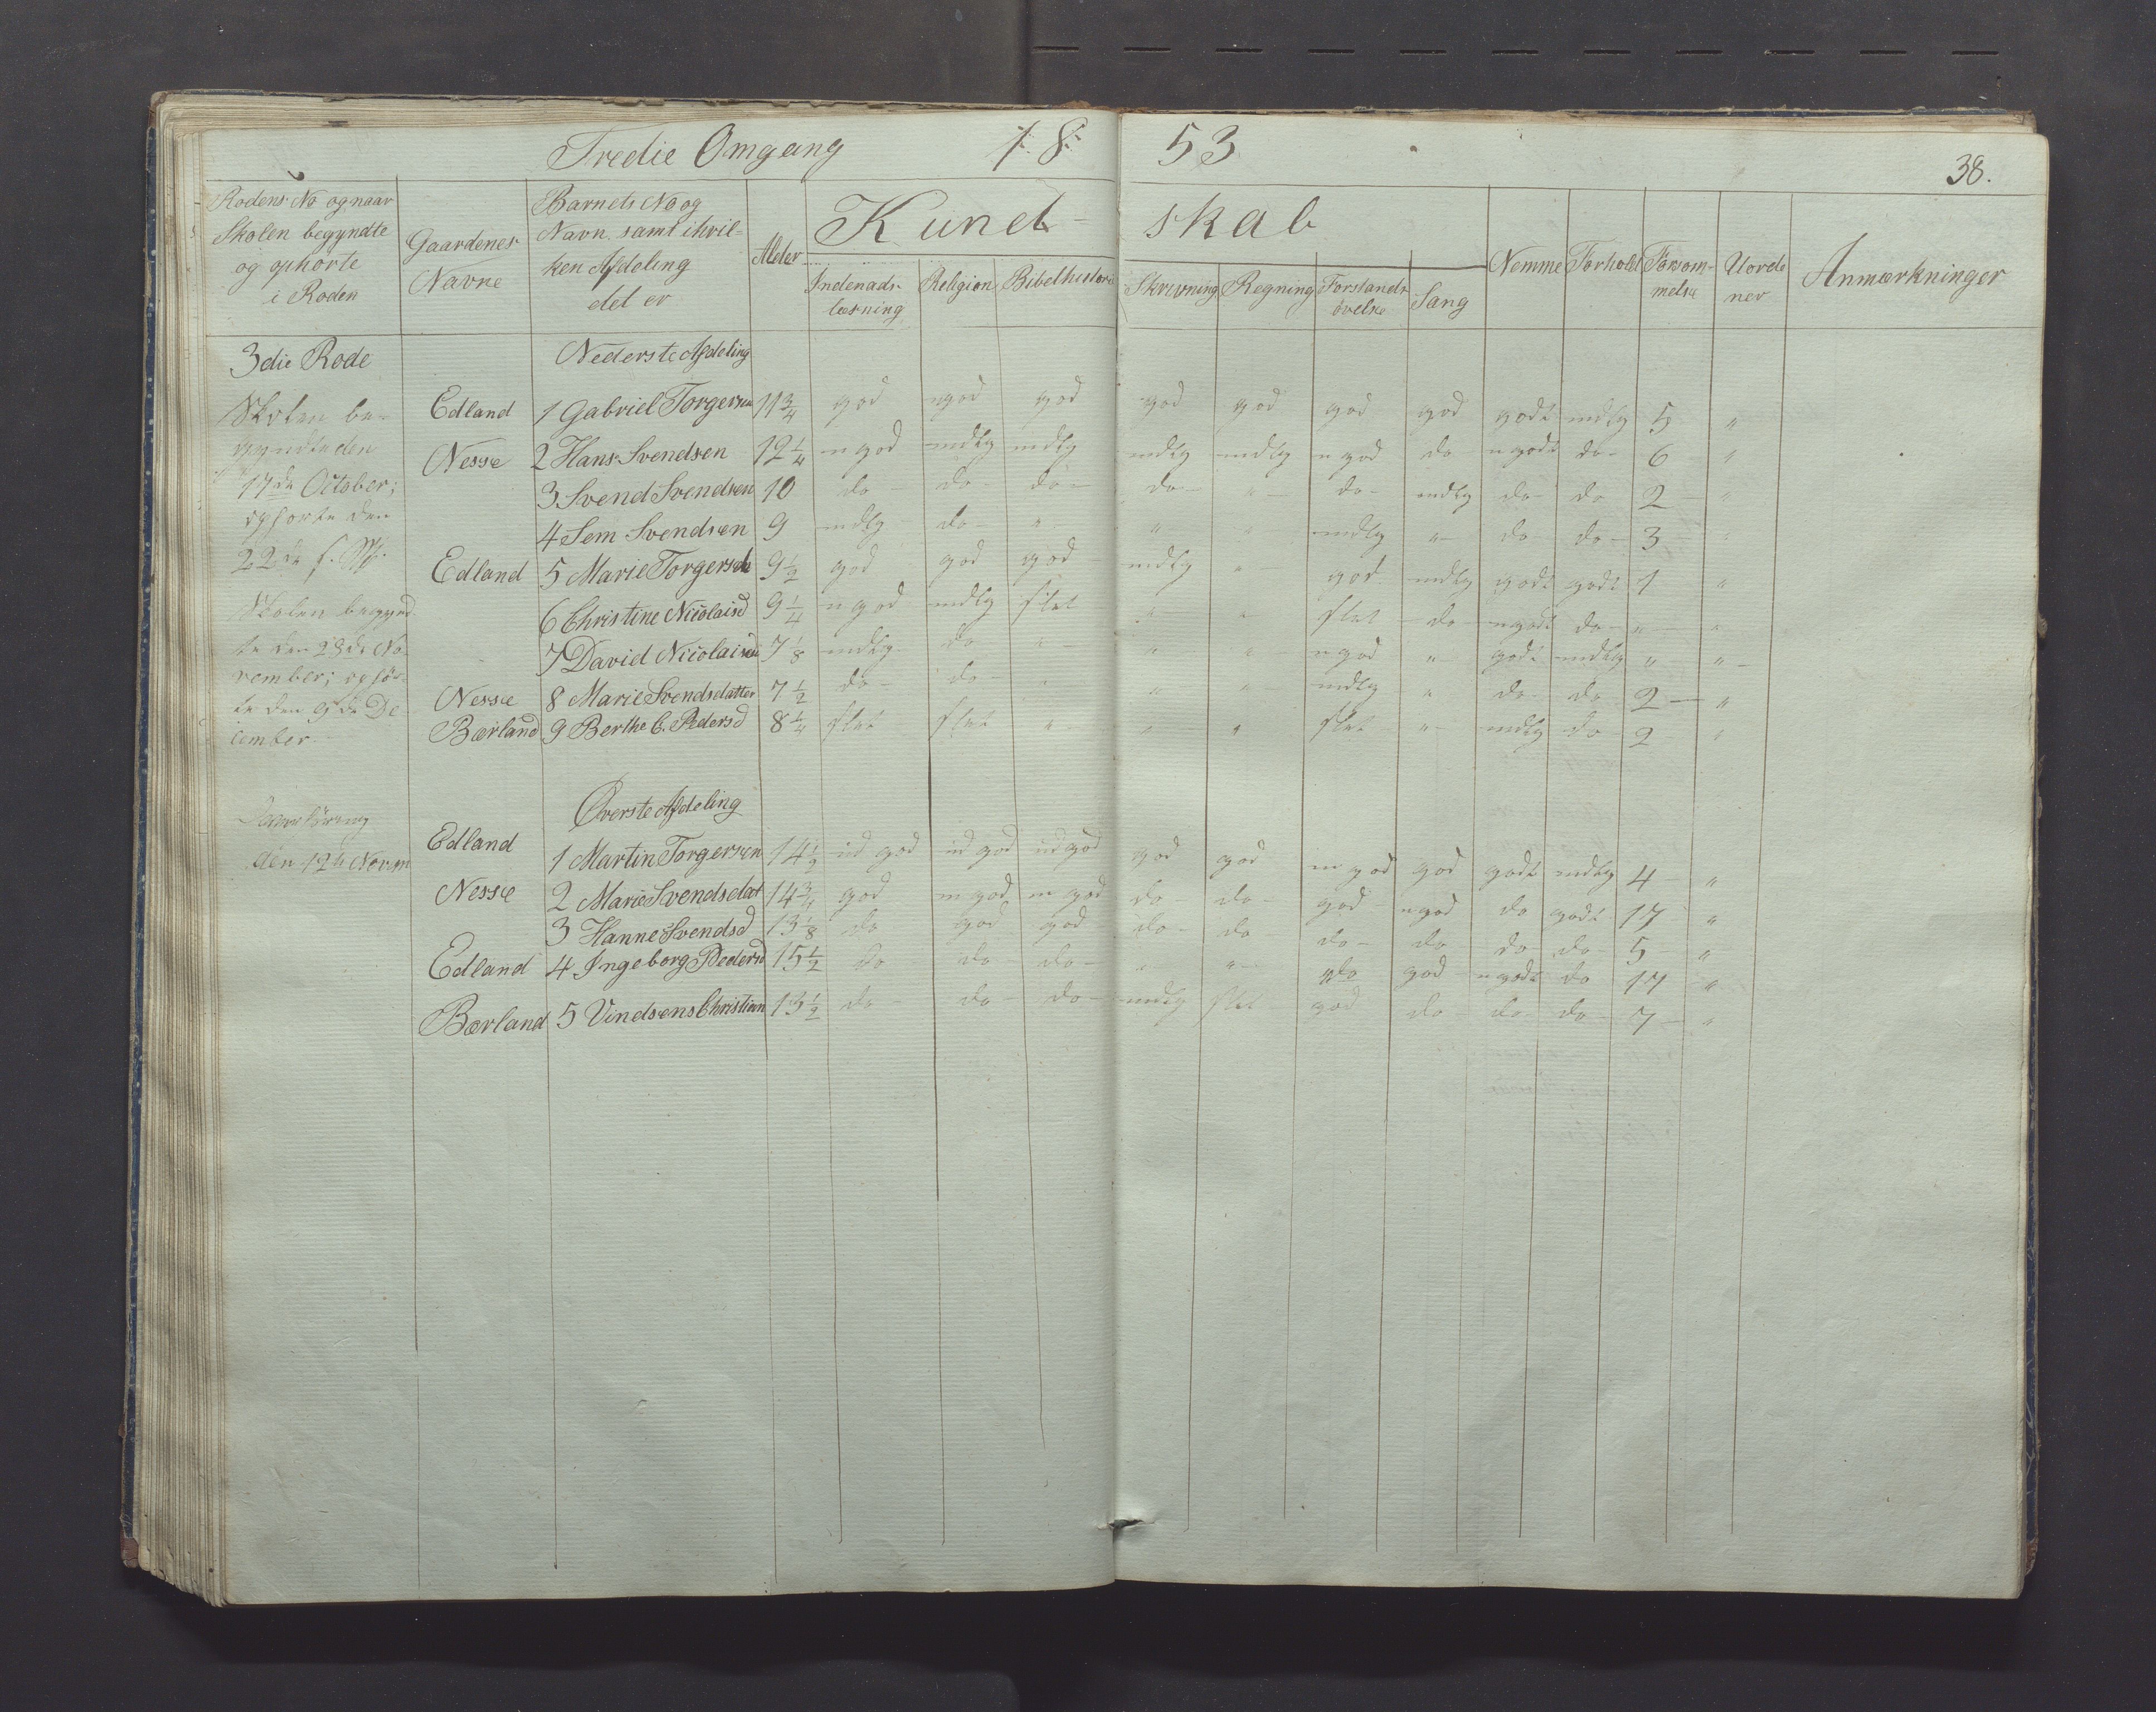 Tredie Omgang 18 53
38.
Rodens No og naar Skolen begyndte og ophörte i Roden
Gaardenes Navne
Barnets No og Navn samt i hvilken Afdeling det er
Alder
Kundskab
Indenadslæsning
Religion
Bibelhistorie
Skrivning
Regning
Forstandsövelse
Sang
Nemme
Forhold
Forsommelse
Uordener
Anmærkninger
3die Rode
Nederste Afdeling
Skolen be-
gyndte den
17de October;
ophörte den
22de s. M.
Skolen begynd-
te den 28de No-
vember; ophör-
te den 9de De-
cember
Edland 1 Gabriel Torgersen 11 3/4 god ngod god god god god god godt mdlg 5 "
Nesse 2 Hans Svendsen 12 1/4 ngod mdlg mdlg mdlg mdlg ngod do ngodt do 6 "
3 Svend Svendsen 10 do do do do " do mdlg do do 2 "
4 Sem Svendsen 9 mdlg do " " " mdlg " do do 3 "
Edland 5 Marie Torgersd 9 1/2 god god god mdlg " god mdlg godt godt 1 "
6 Christine Nicolaisd 9 1/4 ngod mdlg slet " " slet do ngodt do " "
7 David Nicolaisen 7 1/8 mdlg do " " " ngod " godt mdlg " "
Nesse 8 Marie Svendsdatter 7 1/2 do do " " " mdlg " do do 2 "
Bærland 9 Berthe C. Pedersd 8 1/4 slet slet " " " slet " mdlg do 2 "
Överste Afdeling
den 12te Novem
Edland 1 Martin Torgersen 14 1/2 ud god ud god ud god god god m god god godt mdlg 4 "
Nesse 2 Marie Svendsdat 14 3/4 god m god m god do do god ngod do godt 17 "
3 Hanne Svendsd 13 1/8 do god god do do do do do do 5 "
Edland 4 Ingeborg Pedersd 15 1/2 do do do " " do god ngodt do 17 "
Bærland 5 Vindsens Christian 13 1/2 do do do mdlg slet god do do do 7 "